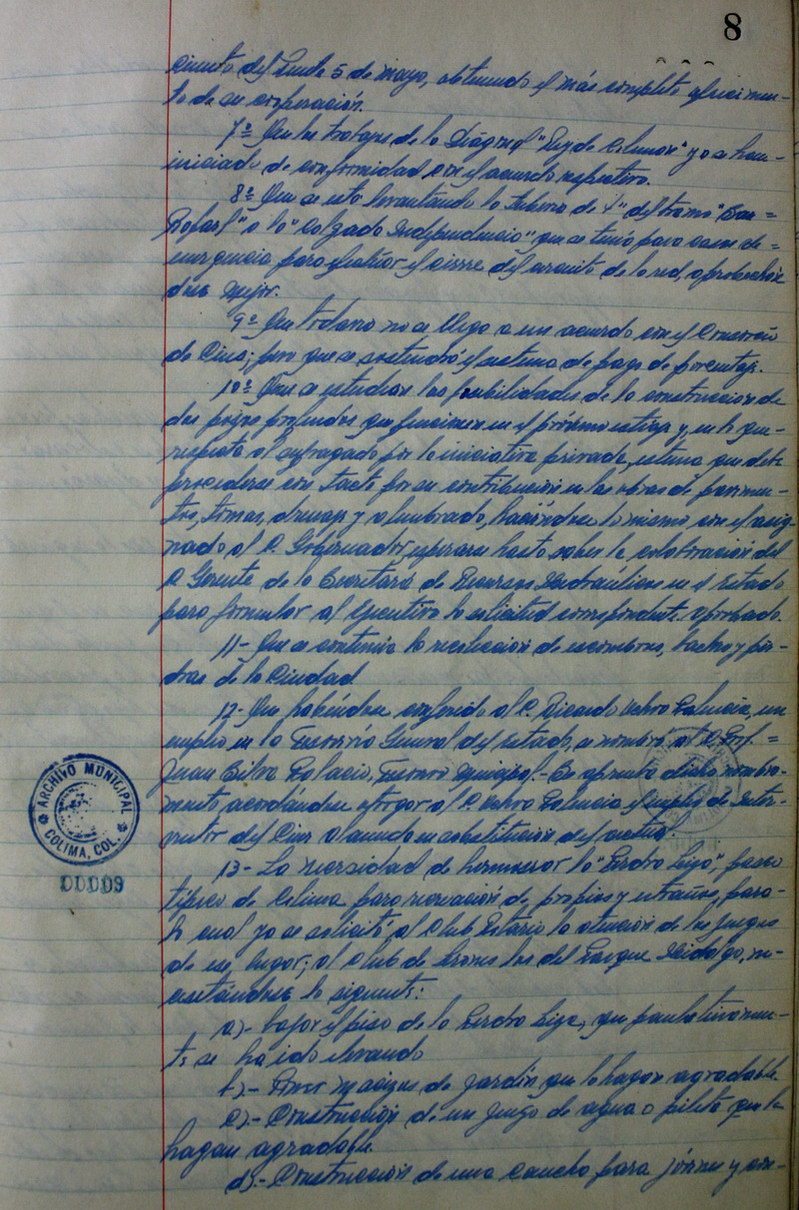 8
ciento del Puente 5 de mayo, obteniendo el más completo ofrecimien-
to de su cooperación.
7º Que los trabajos de la Diagonal "Rey de Coliman" ya se han
iniciado de conformidad con el acuerdo respectivo.
8º Que se esta levantando la tubería de 4" del tramo "San
Rafael" a la "Calzada Independencia" que se tenía para casos de
emergencia para efectuar el cierre del circuito de la red, aprobechán
dose mejor.
9º Que todavía no se llega a un acuerdo con el Consorcio
de Cines; pero que se sostendrá el sistema de pago de porcentaje.
10º Que se estudian las posibilidades de la construcción de
dos pozos profundos que funcionen en el próximo estiaje y, en lo que
respecta al sufragado por la iniciativa privada, estima que debe
procederse con tacto por su contribución en las obras de pavimen-
tos, tomas, drenaje y alumbrado, haciéndose lo mismo con el asig-
nado al C. Gobernador, esperarse hasta saber la colaboración del
C. Gerente de la Secretaría de Recursos Hidráulicos en el Estado
para formular al Ejecutivo la solicitud correspondiente. Aprobado.
11- Que se continúa la recolección de escombros, baches y pie-
dras de la Ciudad
12- Que habiéndose conferido al C. Ricardo Palencia, un
empleo en la Tesorería General del Estado, se nombró al C. Prof.
Juan Silva Palacio, Tesorero Municipal.- Se aprueba dicho nombra-
miento, acordándose otorgar al C. Palencia el empleo de Inter-
ventor del Cine en substitución del actual.
13- La necesidad de hermosear la "Piedra Lisa", paseo
típico de Colima para recreación de propios y extraños, para
lo cual ya se solicitó al Club Rotario la atención de los juegos
de ese lugar; al Club de Leones los del Parque Hidalgo, ne-
cesitándose lo siguiente:
a).- bajar el piso de la Piedra Lisa, que paulatinamen-
te se ha ido elevando
b).- Poner macizos de jardín que lo hagan agradable.
c).- Construcción de un juego de agua o pileta que la
hagan agradable.
d).- Construcción de una cancha para jóvenes y con-
ARCHIVO MUNICIPAL
COLIMA, COL.
00009